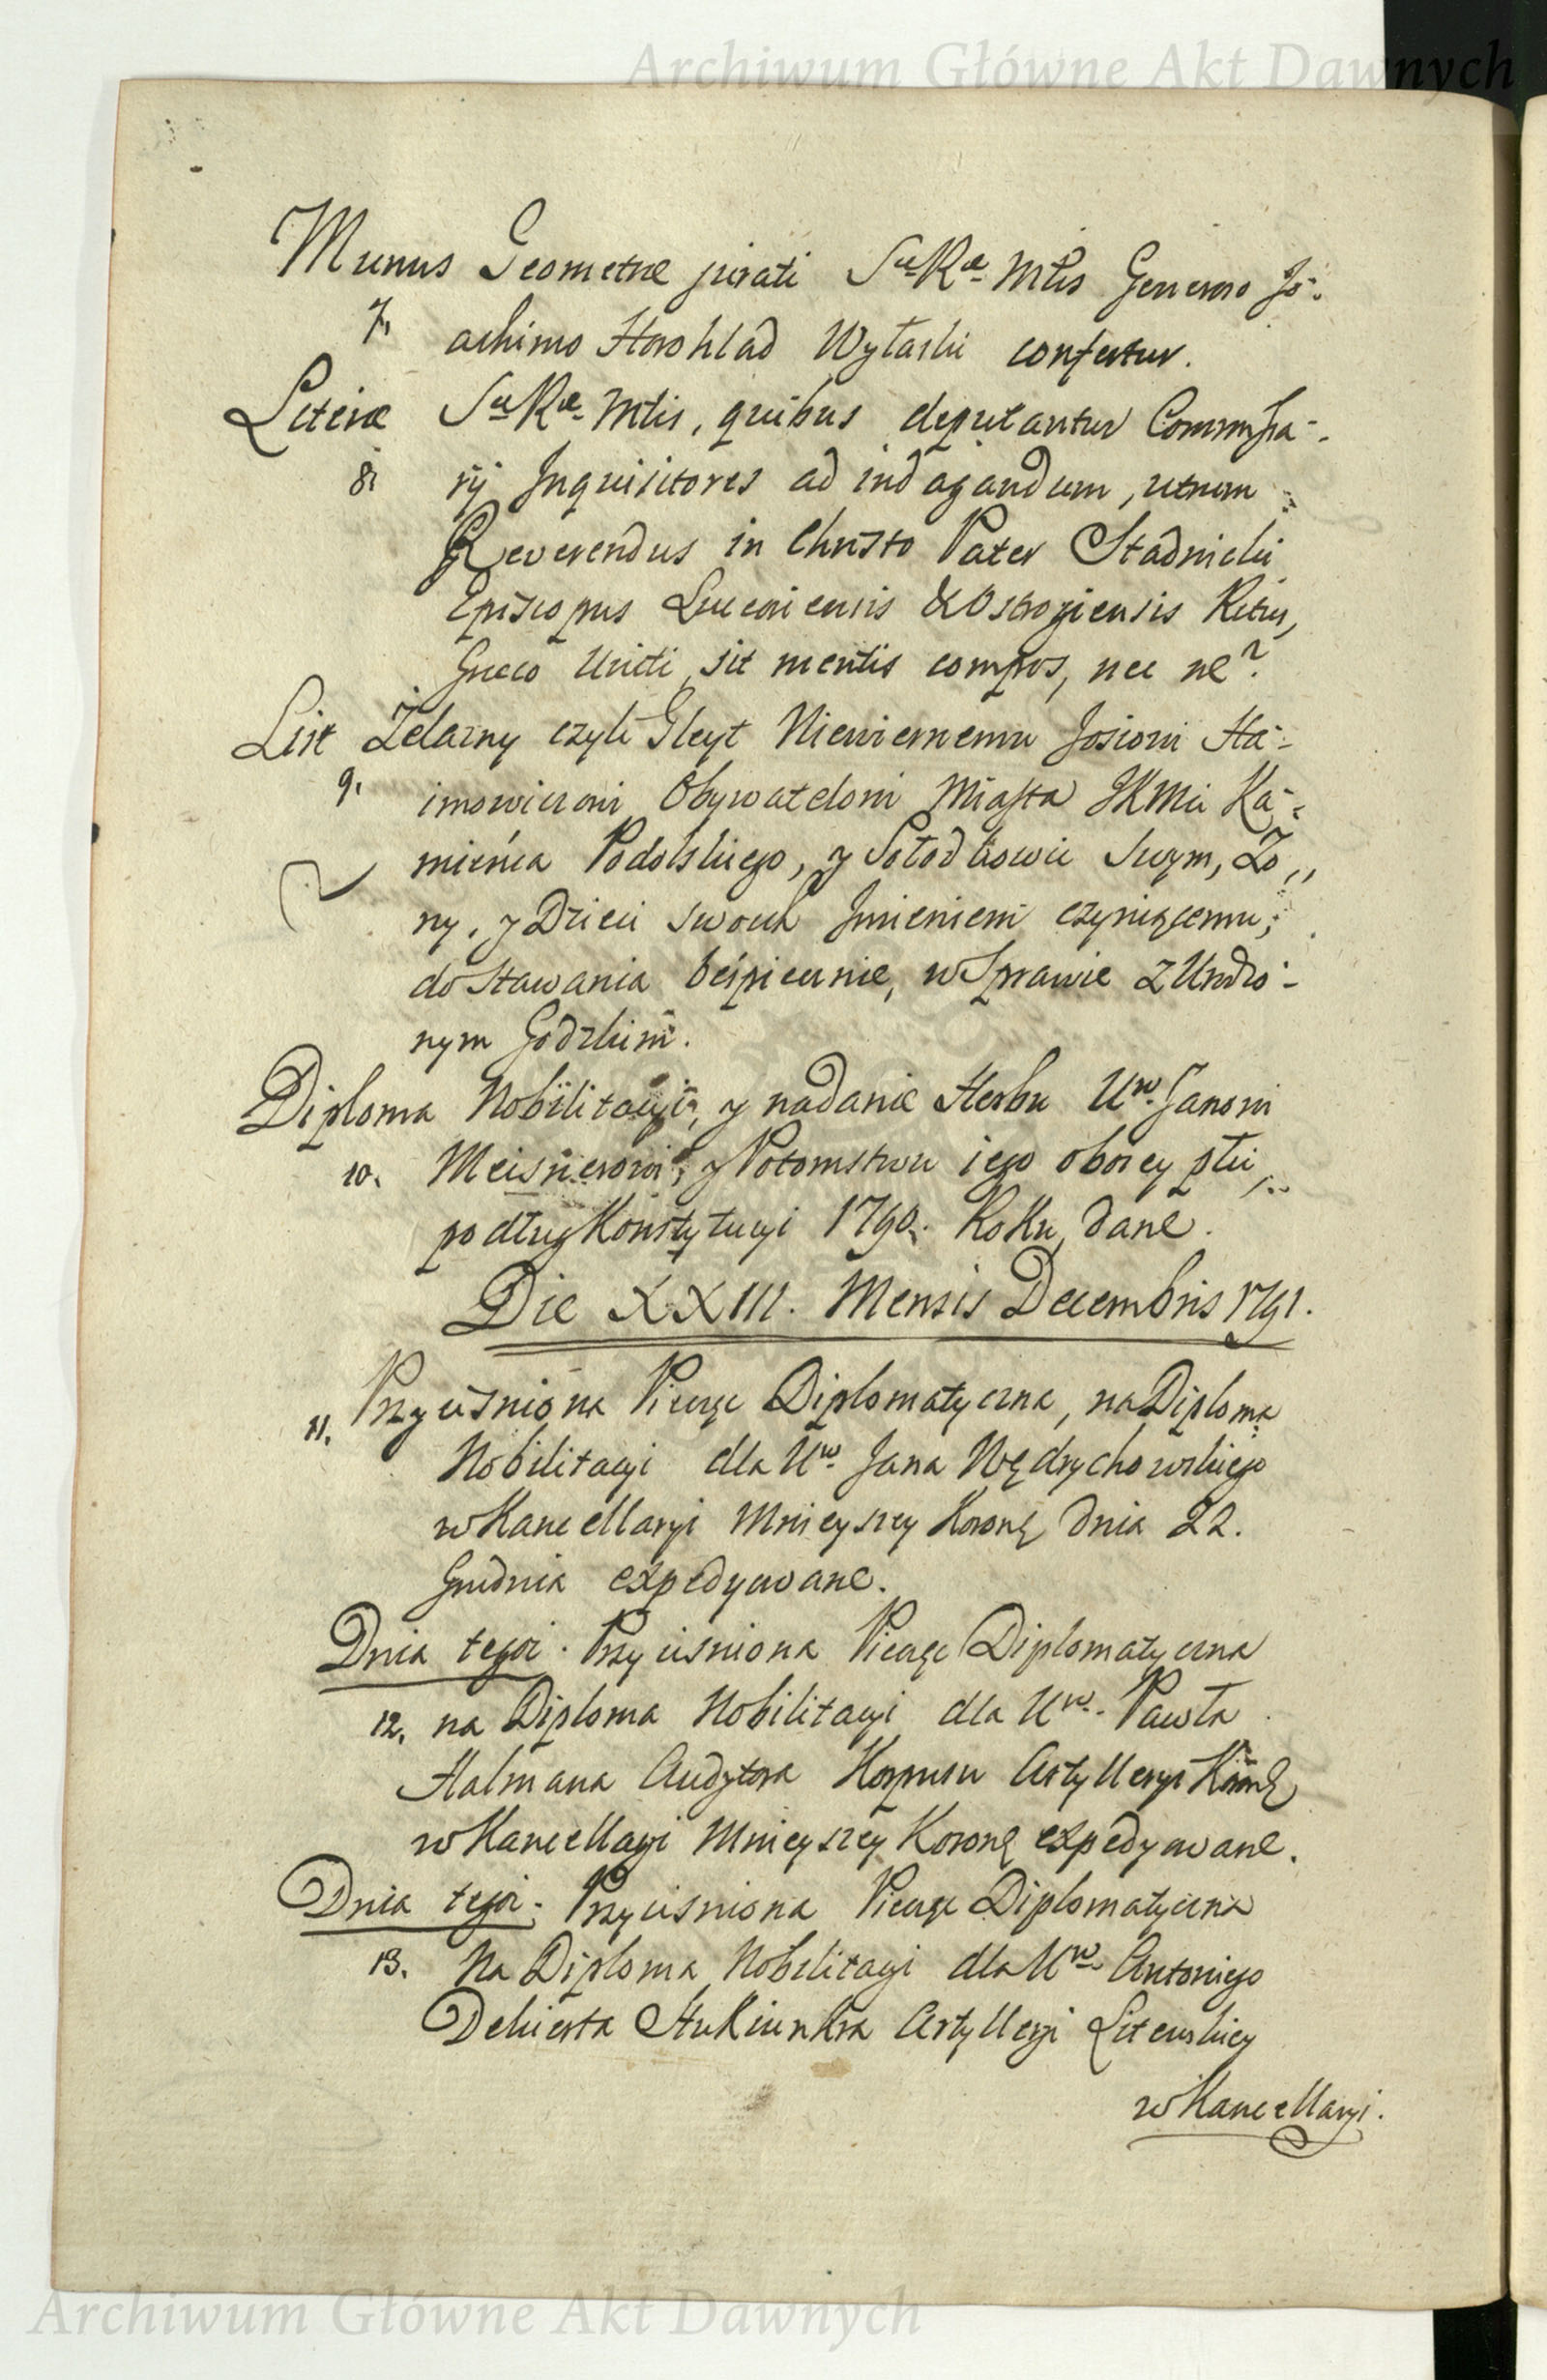 Archiwum Główne Akt Dawnych
Munus Geometræ jurati Sæ Ræ Mtis Generoso Jo-
7. achimo Horohlad Wytaski confertur.
Literæ Sæ Ræ Mtis, quibus deputantur Commissa-
8. rij Inquisitores ad indagandum, utrum
Reverendus in Christo Pater Stadnicki
Episcopus Luceoriensis & Ostrogiensis Ritus,
Græco Uniti, sit mentis compos, nec ne?
List Żelazny czyli Gleyt Niewiernemu Josiowi Ha-
9. imowiczowi Obywatelowi Miasta JKMci Ka-
mieńca Podolskiego, y Sołodkowie Swym, Żo,,
ny, y Dzieci swoich Jmieniem czyniącemu,
do stawania beśpiecznie, w Sprawie z Urodzo-
nym Godzkim.
Diploma Nobilitacyi, y nadanie Herbu Urw. Janowi
10. Meisnerowi, y Potomstwu iego oboiey płci,
podług Konstytucyi 1790. Roku, dane.
Die XXIII. Mensis Decembris 1791.
11. Przyciśniona Pieczęć Diplomatyczna, na Diploma
Nobilitacyi dla Urw. Jana Wędrychowskiego
w Kancellaryi Mnieyszey Koronę dnia 22.
Grudnia expedyowane.
Dnia tegoż. Przyciśniona Pieczęć Diplomatyczna
12. na Diploma Nobilitacyi dla Urw. Pawła
Halmana Audytora Korpusu Artylleryi Koronę
w Kancellaryi Mnieyszey Koronę expedyowane.
Dnia tegoż. Przyciśniona Pieczęć Diplomatyczna
13. Na Diploma Nobilitacyi dla Urw. Antoniego
Dekierta Stukiunkra Artylleryi Litewskiey
w Kancellaryi.
Archiwum Główne Akt Dawnych